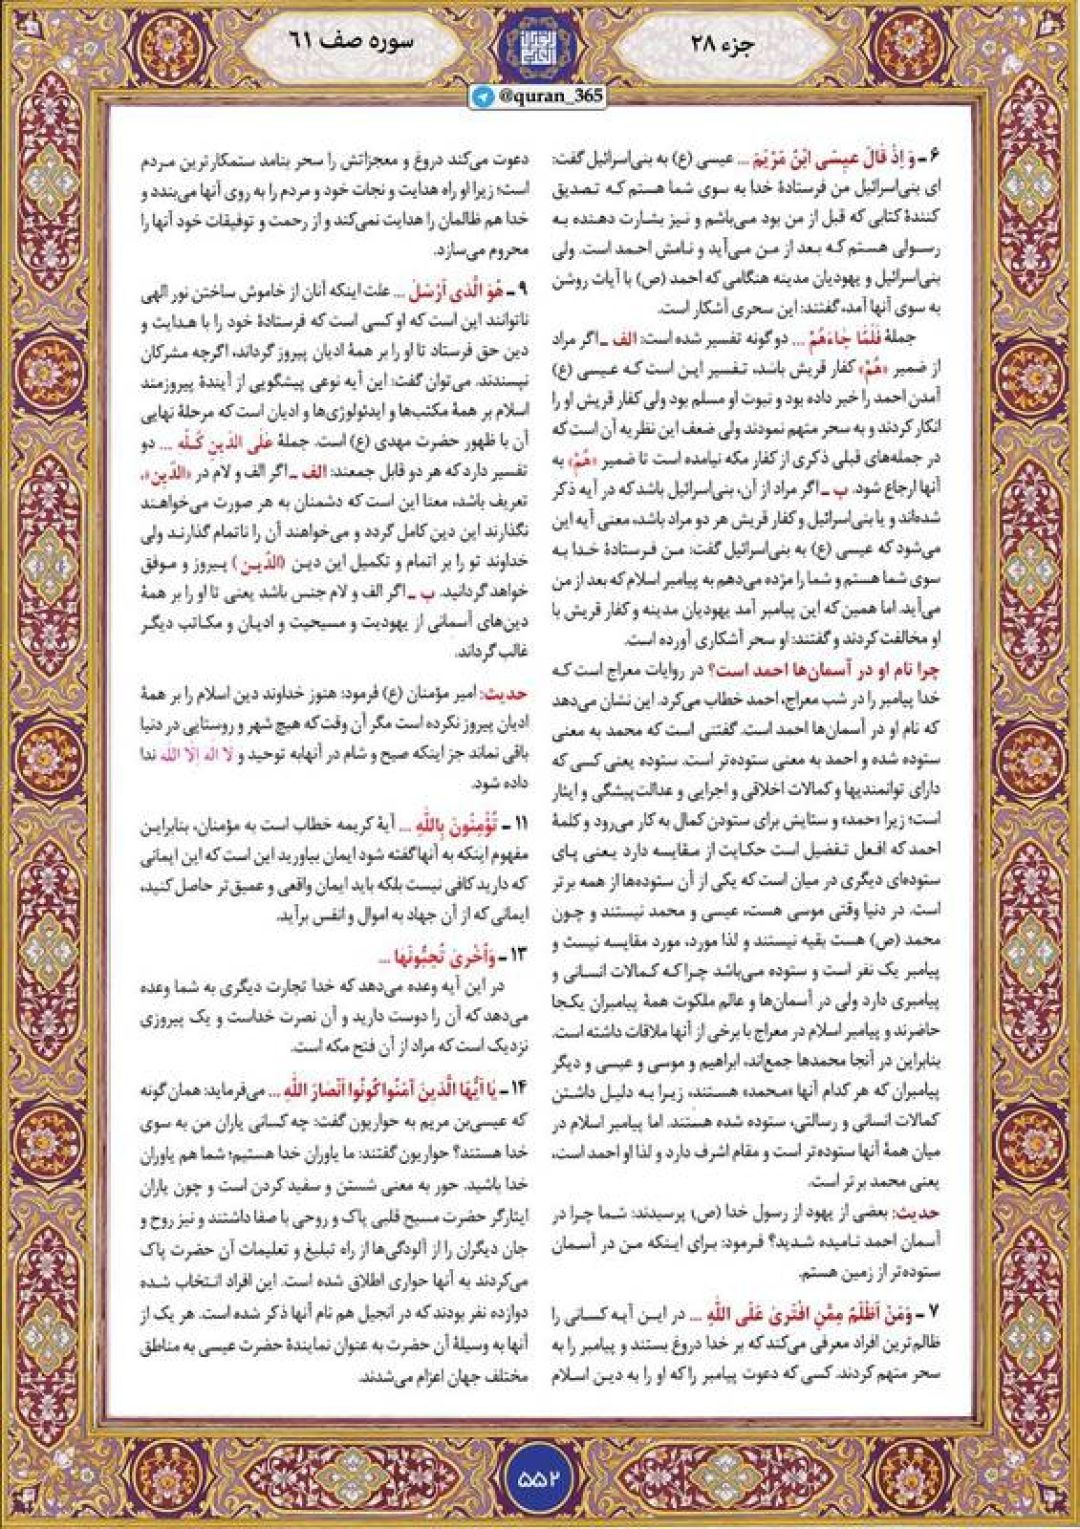 جزء ۲۸
سوره صف ۶۱
@quran_365
۶ - وَ اِذْ قَالَ عیسَی ابْنُ مَرْیَمَ ... عیسی (ع) به بنی‌اسرائیل گفت:
ای بنی‌اسرائیل من فرستادهٔ خدا به سوی شما هستم که تصدیق
کنندهٔ کتابی که قبل از من بود می‌باشم و نیز بشارت دهنده به
رسولی هستم که بعد از من می‌آید و نامش احمد است. ولی
بنی‌اسرائیل و یهودیان مدینه هنگامی که احمد (ص) با آیات روشن
به سوی آنها آمد، گفتند: این سحری آشکار است.
جملهٔ فَلَمّا جاءَهُمْ ... دو گونه تفسیر شده است: الف - اگر مراد
از ضمیر «هُمْ» کفار قریش باشد، تفسیر این است که عیسی (ع)
آمدن احمد را خبر داده بود و نبوت او مسلم بود ولی کفار قریش او را
انکار کردند و به سحر متهم نمودند ولی ضعف این نظریه آن است که
در جمله‌های قبلی ذکری از کفار مکه نیامده است تا ضمیر «هُمْ» به
آنها ارجاع شود. ب - اگر مراد از آن، بنی‌اسرائیل باشد که در آیه ذکر
شده‌اند و یا بنی‌اسرائیل و کفار قریش هر دو مراد باشد، معنی آیه این
می‌شود که عیسی (ع) به بنی‌اسرائیل گفت: من فرستادهٔ خدا به
سوی شما هستم و شما را مژده می‌دهم به پیامبر اسلام که بعد از من
می‌آید. اما همین که این پیامبر آمد یهودیان مدینه و کفار قریش با
او مخالفت کردند و گفتند: او سحر آشکاری آورده است.
چرا نام او در آسمان‌ها احمد است؟ در روایات معراج است که
خدا پیامبر را در شب معراج، احمد خطاب می‌کرد. این نشان می‌دهد
که نام او در آسمان‌ها احمد است. گفتنی است که محمد به معنی
ستوده شده و احمد به معنی ستوده‌تر است. ستوده یعنی کسی که
دارای توانمندیها و کمالات اخلاقی و اجرایی و عدالت‌پیشگی و ایثار
است؛ زیرا «حمد» و ستایش برای ستودن کمال به کار می‌رود و کلمهٔ
احمد که افعل تفضیل است حکایت از مقایسه دارد یعنی پای
ستوده‌ای دیگری در میان است که یکی از آن ستوده‌ها از همه برتر
است. در دنیا وقتی موسی هست، عیسی و محمد نیستند و چون
محمد (ص) هست بقیه نیستند و لذا مورد، مورد مقایسه نیست و
پیامبر یک نفر است و ستوده می‌باشد چرا که کمالات انسانی و
پیامبری دارد ولی در آسمان‌ها و عالم ملکوت همهٔ پیامبران یکجا
حاضرند و پیامبر اسلام در معراج با برخی از آنها ملاقات داشته است.
بنابراین در آنجا محمدها جمع‌اند، ابراهیم و موسی و عیسی و دیگر
پیامبران که هر کدام آنها «محمد» هستند، زیرا به دلیل داشتن
کمالات انسانی و رسالتی، ستوده شده هستند. اما پیامبر اسلام در
میان همهٔ آنها ستوده‌تر است و مقام اشرف دارد و لذا او احمد است،
یعنی محمد برتر است.
حدیث: بعضی از یهود از رسول خدا (ص) پرسیدند: شما چرا در
آسمان احمد نامیده شدید؟ فرمود: برای اینکه من در آسمان
ستوده‌تر از زمین هستم.
۷ - وَمَنْ اَظْلَمُ مِمَّنِ افْتَری عَلَی اللهِ ... در این آیه کسانی را
ظالم‌ترین افراد معرفی می‌کند که بر خدا دروغ بستند و پیامبر را به
سحر متهم کردند. کسی که دعوت پیامبر را که او را به دین اسلام
دعوت می‌کند دروغ و معجزاتش را سحر بنامد ستمکارترین مردم
است؛ زیرا او راه هدایت و نجات خود و مردم را به روی آنها می‌بندد و
خدا هم ظالمان را هدایت نمی‌کند و از رحمت و توفیقات خود آنها را
محروم می‌سازد.
۹ - هُوَ الَّذی اَرْسَلَ ... علت اینکه آنان از خاموش ساختن نور الهی
ناتوانند این است که او کسی است که فرستادهٔ خود را با هدایت و
دین حق فرستاد تا او را بر همهٔ ادیان پیروز گرداند، اگرچه مشرکان
نپسندند. می‌توان گفت: این آیه نوعی پیشگویی از آیندهٔ پیروزمند
اسلام بر همهٔ مکتب‌ها و ایدئولوژی‌ها و ادیان است که مرحلهٔ نهایی
آن با ظهور حضرت مهدی (ع) است. جملهٔ عَلَی الدّینِ کُلِّه ... دو
تفسیر دارد که هر دو قابل جمعند: الف - اگر الف و لام در «الدّین»،
تعریف باشد، معنا این است که دشمنان به هر صورت می‌خواهند
نگذارند این دین کامل گردد و می‌خواهند آن را ناتمام گذارند ولی
خداوند تو را بر اتمام و تکمیل این دین (الدّین) پیروز و موفق
خواهد گردانید. ب - اگر الف و لام جنس باشد یعنی تا او را بر همهٔ
دین‌های آسمانی از یهودیت و مسیحیت و ادیان و مکاتب دیگر
غالب گرداند.
حدیث: امیر مؤمنان (ع) فرمود: هنوز خداوند دین اسلام را بر همهٔ
ادیان پیروز نکرده است مگر آن وقت که هیچ شهر و روستایی در دنیا
باقی نماند جز اینکه صبح و شام در آنهابه توحید و لا اله الّا الله ندا
داده شود.
۱۱ - تُؤْمِنُونَ بِاللهِ ... آیهٔ کریمه خطاب است به مؤمنان، بنابراین
مفهوم اینکه به آنها گفته شود ایمان بیاورید این است که این ایمانی
که دارید کافی نیست بلکه باید ایمان واقعی و عمیق‌تر حاصل کنید،
ایمانی که از آن جهاد به اموال و انفس برآید.
۱۳ - وَاُخْری تُحِبُّونَها ...
در این آیه وعده می‌دهد که خدا تجارت دیگری به شما وعده
می‌دهد که آن را دوست دارید و آن نصرت خداست و یک پیروزی
نزدیک است که مراد از آن فتح مکه است.
۱۴ - یا اَیُّهَا الَّذینَ آمَنُوا کُونُوا اَنْصارَ اللهِ ... می‌فرماید: همان گونه
که عیسی‌بن مریم به حواریون گفت: چه کسانی یاران من به سوی
خدا هستند؟ حواریون گفتند: ما یاوران خدا هستیم؛ شما هم یاوران
خدا باشید. حور به معنی شستن و سفید کردن است و چون یاران
ایثارگر حضرت مسیح قلبی پاک و روحی با صفا داشتند و نیز روح و
جان دیگران را از آلودگی‌ها از راه تبلیغ و تعلیمات آن حضرت پاک
می‌کردند به آنها حواری اطلاق شده است. این افراد انتخاب شده
دوازده نفر بودند که در انجیل هم نام آنها ذکر شده است. هر یک از
آنها به وسیلهٔ آن حضرت به عنوان نمایندهٔ حضرت عیسی به مناطق
مختلف جهان اعزام می‌شدند.
۵۵۲